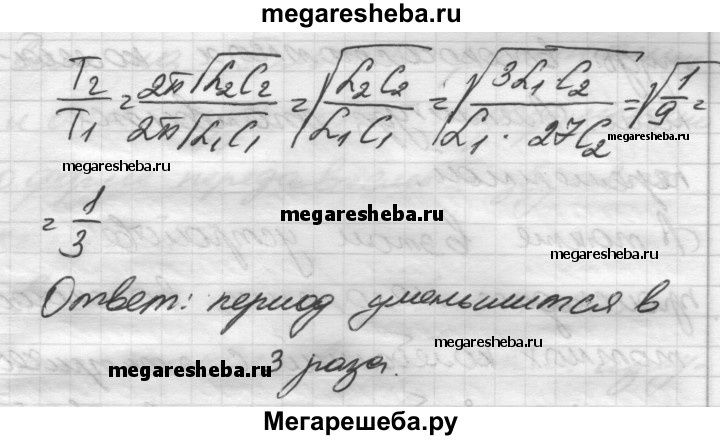 megaresheba.ru
T₂/T₁ = 2π√(L₂C₂)/2π√(L₁C₁) = √(L₂C₂/L₁C₁) = √(3L₁·C₂/L₁·27C₂) = √(1/9) =
megaresheba.ru
megaresheba.ru
= 1/3
megaresheba.ru
megaresheba.ru
Ответ: период уменьшится в
megaresheba.ru
3 раза.
megaresheba.ru
Мегарешеба.ру